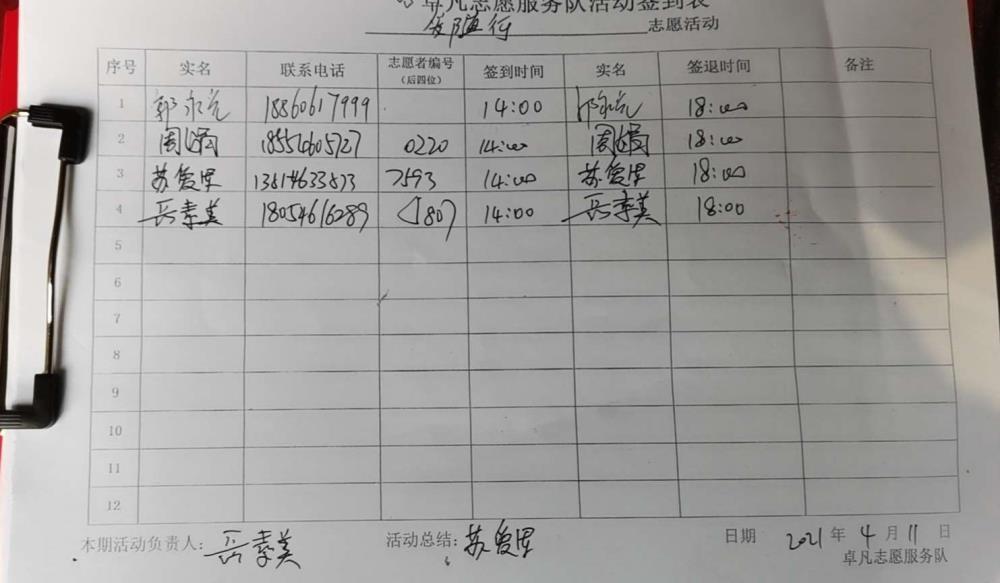 卓凡志愿服务队活动签到表
随行 志愿活动
序号 实名 联系电话 志愿者编号(后四位) 签到时间 实名 签退时间 备注
1 郭永亮 18860617999 14:00 郭永亮 18:00
2 周娟 18550605727 0220 14:00 周娟 18:00
3 苏爱星 13814633873 7593 14:00 苏爱星 18:00
4 岳素美 18054616289 1807 14:00 岳素美 18:00
5
6
7
8
9
10
11
12
本期活动负责人: 岳素美 活动总结: 苏爱星 日期 2021年4月11日
卓凡志愿服务队